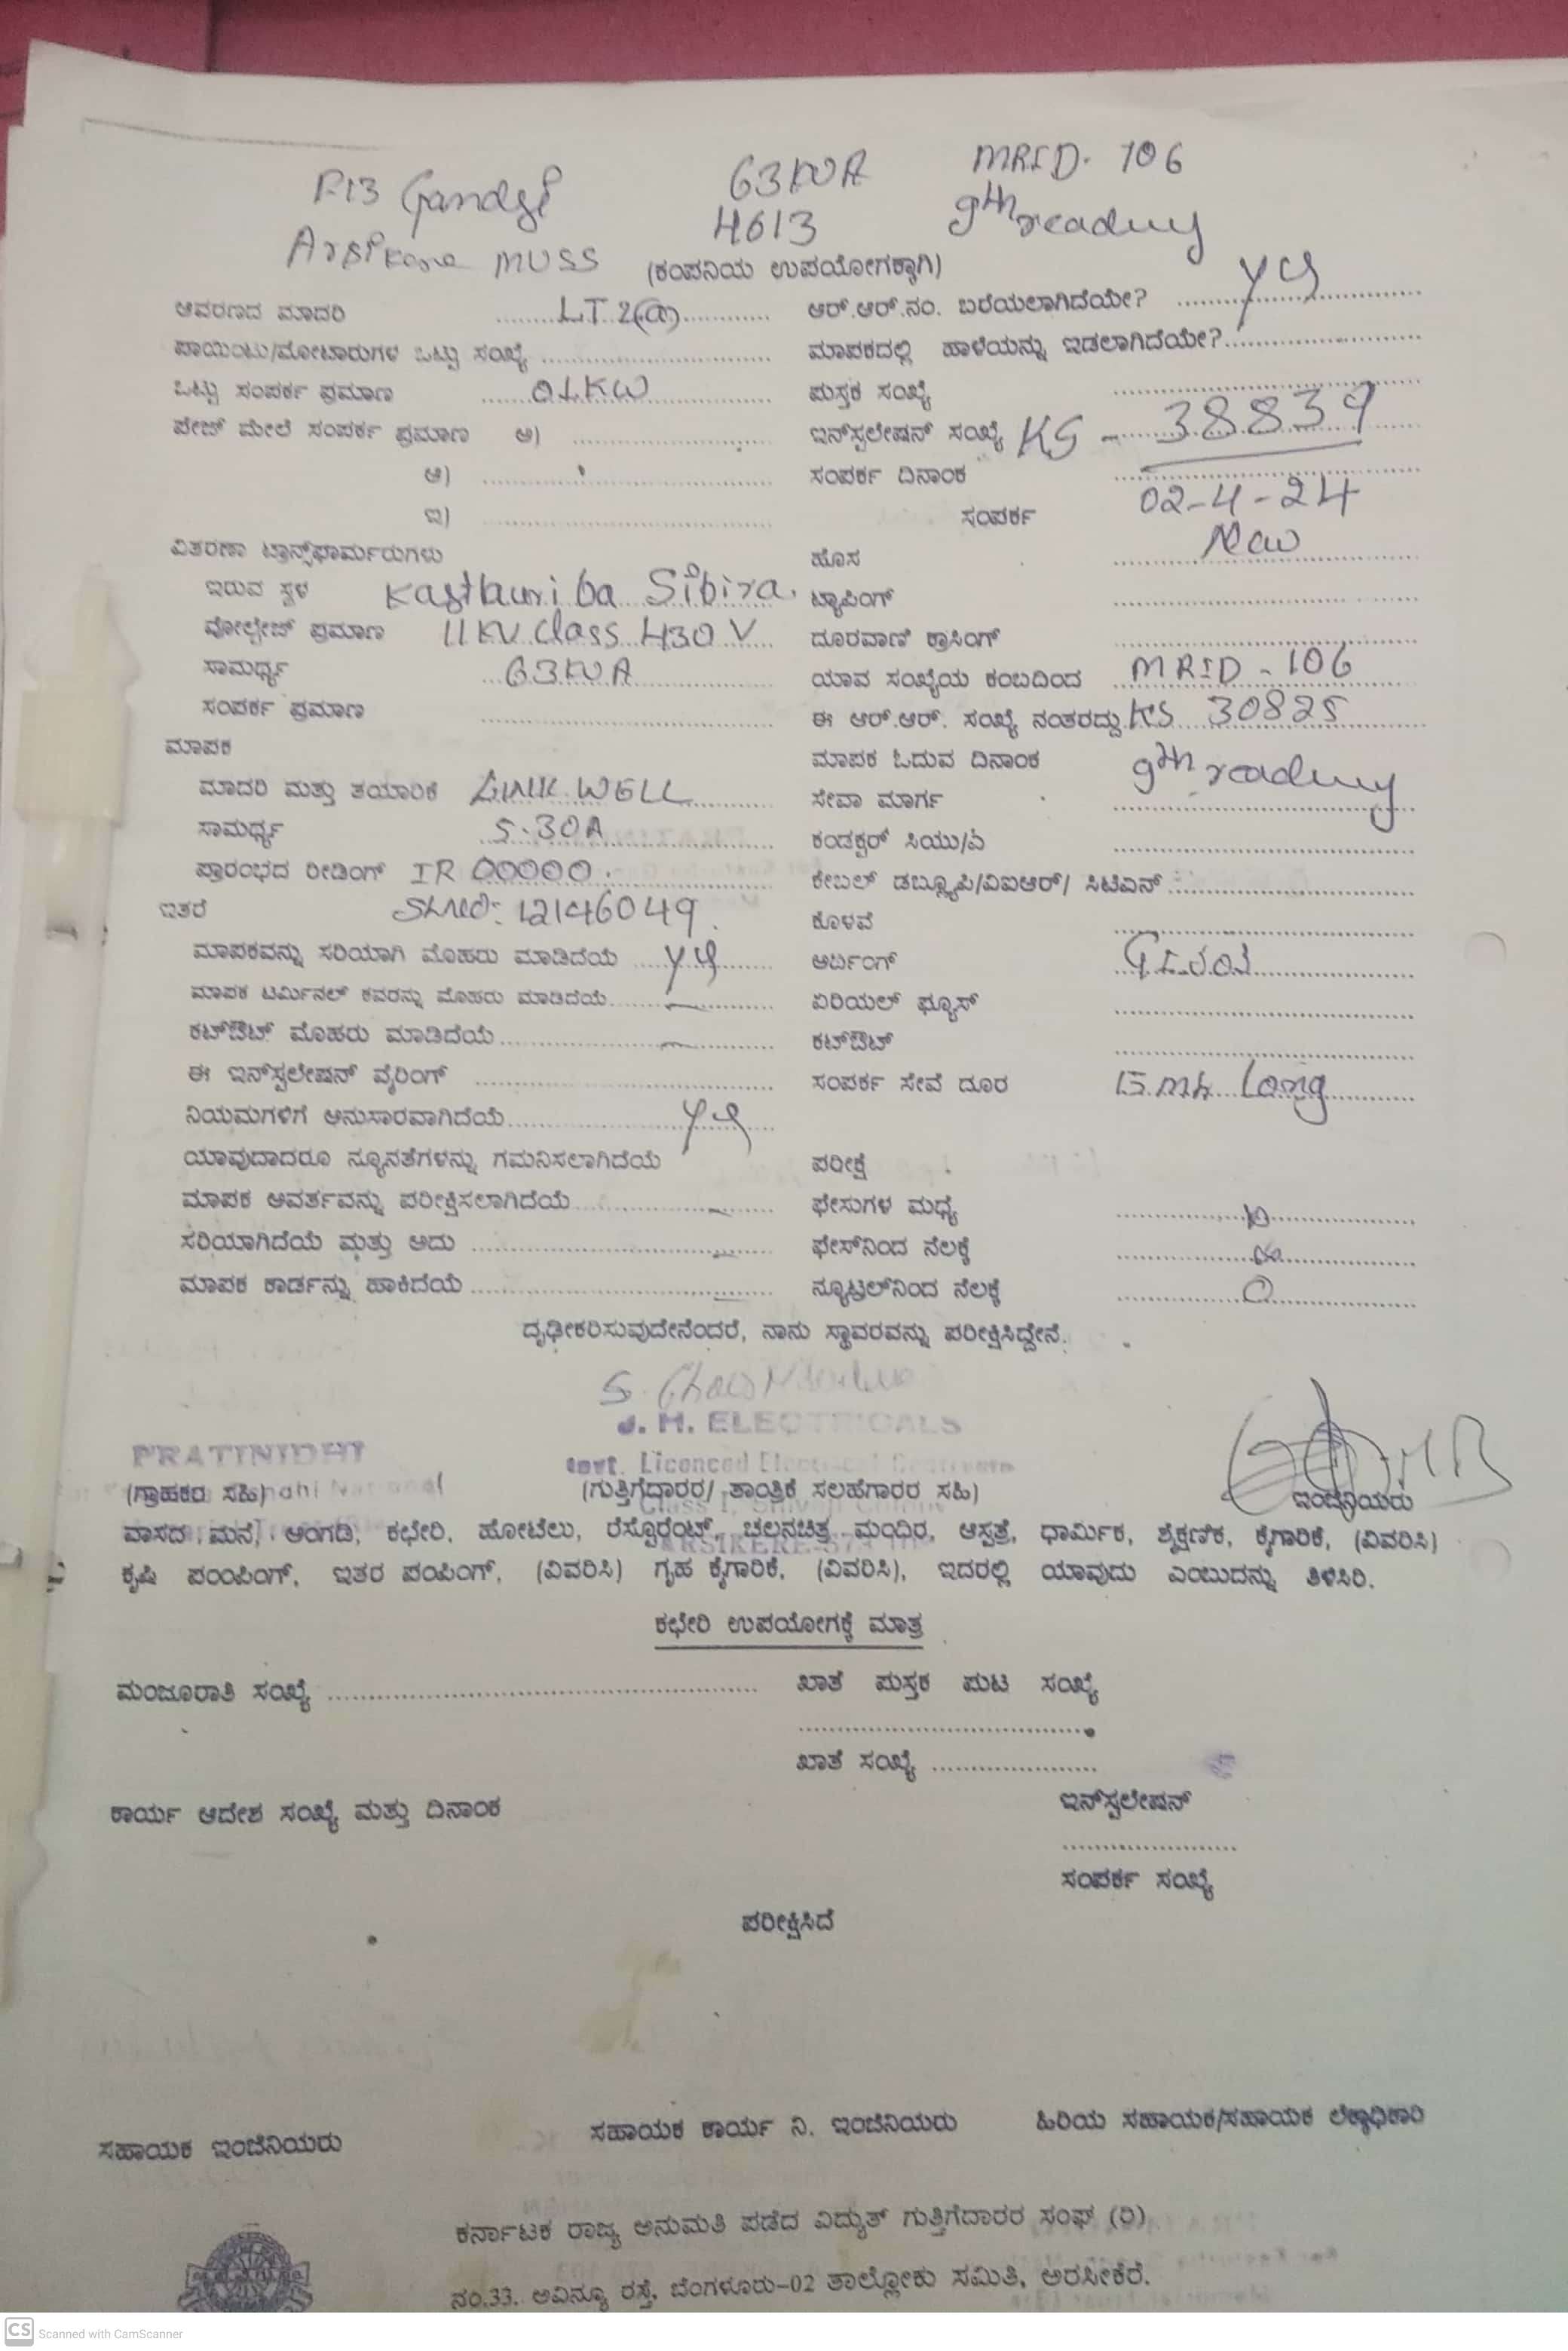 F13 Gandgi 63KVA MRID- 106
Arsikere MUSS 4613 9th reading
(ಕಂಪನಿಯ ಉಪಯೋಗಕ್ಕಾಗಿ)
ಆವರಣದ ಮಾದರಿ LT 2(a) ಆರ್.ಆರ್.ನಂ. ಬರೆಯಲಾಗಿದೆಯೇ?
ಪಾಯಿಂಟು/ಮೋಟಾರುಗಳ ಒಟ್ಟು ಸಂಖ್ಯೆ ಮಾಪಕದಲ್ಲಿ ಹಾಳೆಯನ್ನು ಇಡಲಾಗಿದೆಯೇ?
ಒಟ್ಟು ಸಂಪರ್ಕ ಪ್ರಮಾಣ 01KW ಪುಸ್ತಕ ಸಂಖ್ಯೆ
ಪೇಜ್ ಮೇಲೆ ಸಂಪರ್ಕ ಪ್ರಮಾಣ ಅ) ಇನ್‌ಸ್ಟಲೇಷನ್ ಸಂಖ್ಯೆ KS - 38839
ಆ) ಸಂಪರ್ಕ ದಿನಾಂಕ 02-4-24
ಇ) ಸಂಪರ್ಕ
ವಿತರಣಾ ಟ್ರಾನ್ಸ್‌ಫಾರ್ಮರುಗಳು ಹೊಸ New
ಇರುವ ಸ್ಥಳ Kasthuri ba Sibira. ಟ್ಯಾಪಿಂಗ್
ವೋಲ್ಟೇಜ್ ಪ್ರಮಾಣ 11KV Class 430 V ದೂರವಾಣಿ ಕ್ರಾಸಿಂಗ್
ಸಾಮರ್ಥ್ಯ 63KVA ಯಾವ ಸಂಖ್ಯೆಯ ಕಂಬದಿಂದ MRID - 106
ಸಂಪರ್ಕ ಪ್ರಮಾಣ ಈ ಆರ್.ಆರ್. ಸಂಖ್ಯೆ ನಂತರದ್ದು KS 30825
ಮಾಪಕ ಮಾಪಕ ಓದುವ ದಿನಾಂಕ 9th reading
ಮಾದರಿ ಮತ್ತು ತಯಾರಿಕೆ LINK WELL ಸೇವಾ ಮಾರ್ಗ
ಸಾಮರ್ಥ್ಯ 5-30A ಕಂಡಕ್ಟರ್ ಸಿಯು/ಏ
ಪ್ರಾರಂಭದ ರೀಡಿಂಗ್ IR 00000. ಕೇಬಲ್ ಡಬ್ಲ್ಯೂಪಿ/ವಿಐಆರ್/ ಸಿಟಿಎಸ್
ಇತರೆ Sl.NO: 12146049. ಕೊಳವೆ
ಮಾಪಕವನ್ನು ಸರಿಯಾಗಿ ಮೊಹರು ಮಾಡಿದೆಯೆ ಅರ್ಥಿಂಗ್
ಮಾಪಕ ಟರ್ಮಿನಲ್ ಕವರನ್ನು ಮೊಹರು ಮಾಡಿದೆಯೆ ಏರಿಯಲ್ ಫ್ಯೂಸ್
ಕಟ್‌ಔಟ್ ಮೊಹರು ಮಾಡಿದೆಯೆ ಕಟ್‌ಔಟ್
ಈ ಇನ್‌ಸ್ಟಲೇಷನ್ ವೈರಿಂಗ್ ಸಂಪರ್ಕ ಸೇವೆ ದೂರ long
ನಿಯಮಗಳಿಗೆ ಅನುಸಾರವಾಗಿದೆಯೆ
ಯಾವುದಾದರೂ ನ್ಯೂನತೆಗಳನ್ನು ಗಮನಿಸಲಾಗಿದೆಯೆ ಪರೀಕ್ಷೆ
ಮಾಪಕ ಆವರ್ತವನ್ನು ಪರೀಕ್ಷಿಸಲಾಗಿದೆಯೆ ಫೇಸುಗಳ ಮಧ್ಯೆ
ಸರಿಯಾಗಿದೆಯೆ ಮತ್ತು ಅದು ಫೇಸ್‌ನಿಂದ ನೆಲಕ್ಕೆ
ಮಾಪಕ ಕಾರ್ಡನ್ನು ಹಾಕಿದೆಯೆ ನ್ಯೂಟ್ರಲ್‌ನಿಂದ ನೆಲಕ್ಕೆ
ದೃಢೀಕರಿಸುವುದೇನೆಂದರೆ, ನಾನು ಸ್ಥಾವರವನ್ನು ಪರೀಕ್ಷಿಸಿದ್ದೇನೆ.
J. H. ELECTRICALS
PRATINIDHI
Govt. Licenced Electrical
(ಗ್ರಾಹಕರ ಸಹಿ) (ಗುತ್ತಿಗೆದಾರರ/ ತಾಂತ್ರಿಕ ಸಲಹೆಗಾರರ ಸಹಿ) ಇಂಜಿನಿಯರು
ವಾಸದ ಮನೆ, ಅಂಗಡಿ, ಕಛೇರಿ, ಹೋಟೆಲು, ರೆಸ್ಟೊರೆಂಟ್, ಚಲನಚಿತ್ರ ಮಂದಿರ, ಆಸ್ಪತ್ರೆ, ಧಾರ್ಮಿಕ, ಶೈಕ್ಷಣಿಕ, ಕೈಗಾರಿಕೆ, (ವಿವರಿಸಿ)
ಕೃಷಿ ಪಂಪಿಂಗ್, ಇತರ ಪಂಪಿಂಗ್, (ವಿವರಿಸಿ) ಗೃಹ ಕೈಗಾರಿಕೆ, (ವಿವರಿಸಿ), ಇದರಲ್ಲಿ ಯಾವುದು ಎಂಬುದನ್ನು ತಿಳಿಸಿರಿ.
ಕಛೇರಿ ಉಪಯೋಗಕ್ಕೆ ಮಾತ್ರ
ಮಂಜೂರಾತಿ ಸಂಖ್ಯೆ ಖಾತೆ ಪುಸ್ತಕ ಪುಟ ಸಂಖ್ಯೆ
ಖಾತೆ ಸಂಖ್ಯೆ
ಕಾರ್ಯ ಆದೇಶ ಸಂಖ್ಯೆ ಮತ್ತು ದಿನಾಂಕ ಇನ್‌ಸ್ಟಲೇಷನ್
ಸಂಪರ್ಕ ಸಂಖ್ಯೆ
ಪರೀಕ್ಷಿಸಿದೆ
ಸಹಾಯಕ ಇಂಜಿನಿಯರು ಸಹಾಯಕ ಕಾರ್ಯ ನಿ. ಇಂಜಿನಿಯರು ಹಿರಿಯ ಸಹಾಯಕ/ಸಹಾಯಕ ಲೆಕ್ಕಾಧಿಕಾರಿ
ಕರ್ನಾಟಕ ರಾಜ್ಯ ಅನುಮತಿ ಪಡೆದ ವಿದ್ಯುತ್ ಗುತ್ತಿಗೆದಾರರ ಸಂಘ (ರಿ)
ನಂ.33. ಅವಿನ್ಯೂ ರಸ್ತೆ, ಬೆಂಗಳೂರು-02 ತಾಲ್ಲೋಕು ಸಮಿತಿ, ಅರಸೀಕೆರೆ.
CS Scanned with CamScanner